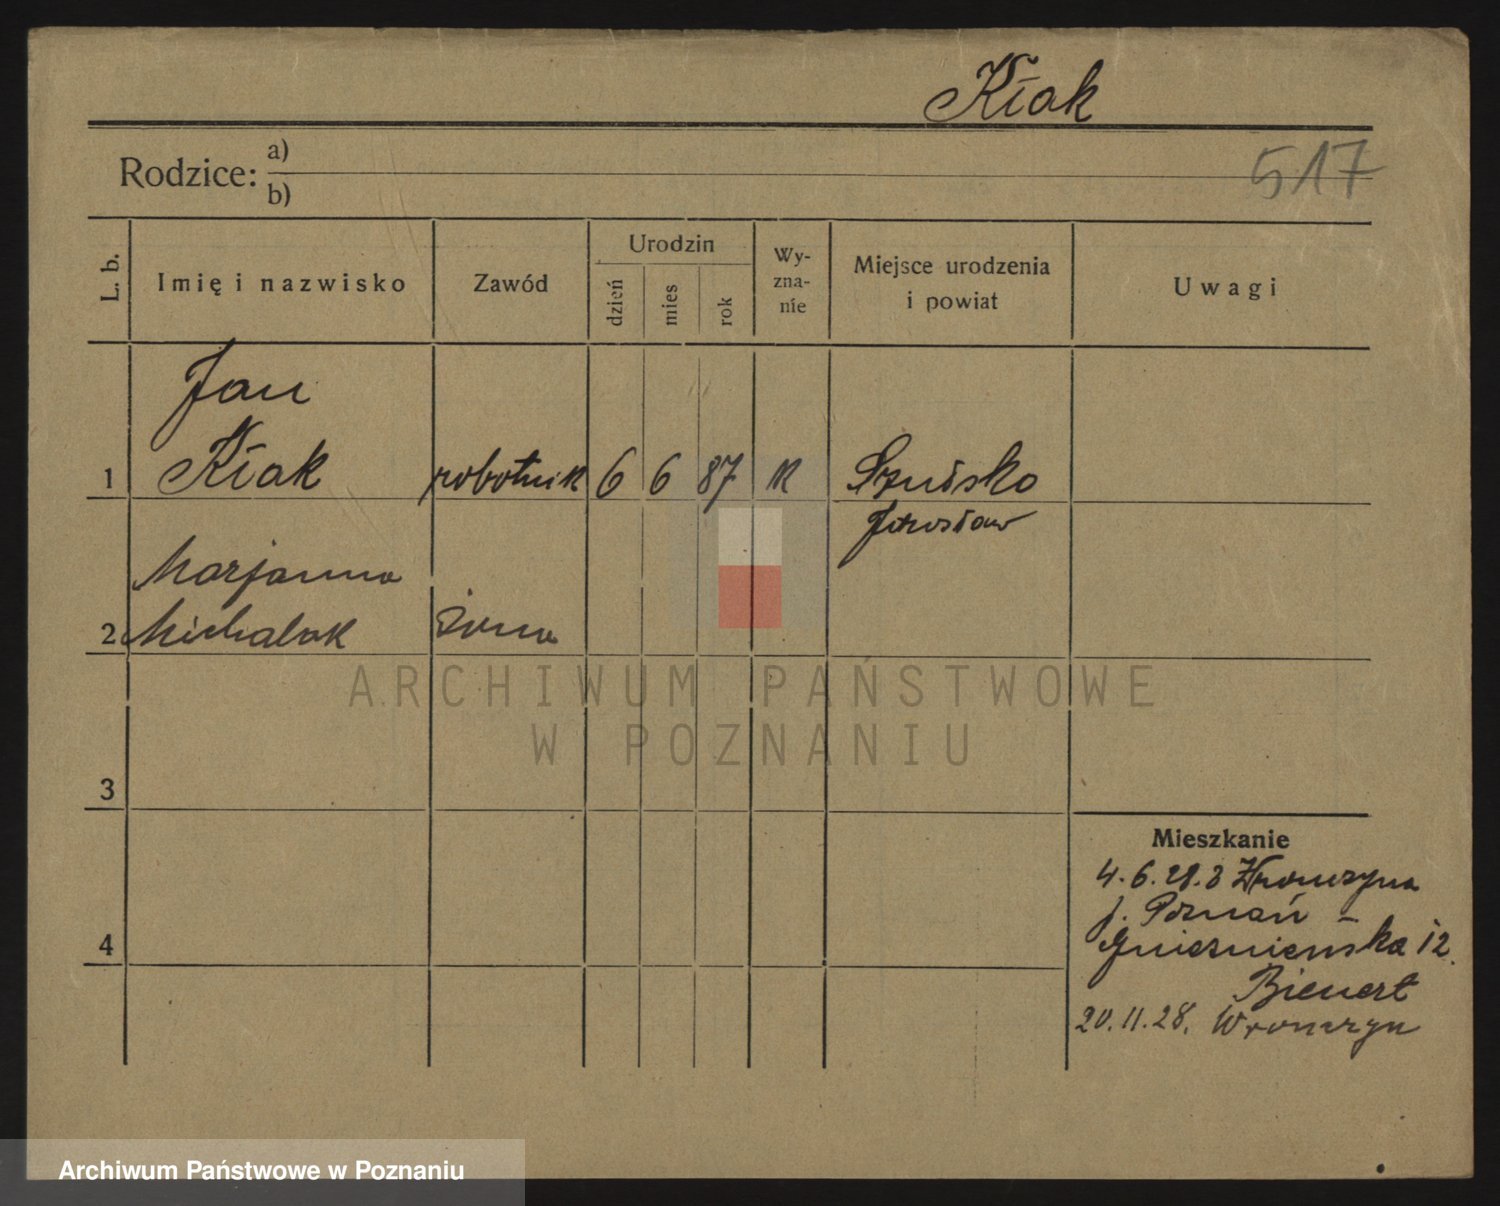 Kłak
517
Rodzice: a)
b)
L. b.
Imię i nazwisko
Zawód
Urodzin
dzień
mies
rok
Wy-
zna-
nie
Miejsce urodzenia
i powiat
Uwagi
Jan
1 Kłak robotnik 6 6 87 K
Jarosław
Marjanna
2 Michalak żona
3
4
Mieszkanie
4.6.28. z Wronczyna
j. Poznań -
Gnieźnieńska 12.
Bienert
20.11.28. Wronczyn
ARCHIWUM PAŃSTWOWE
W POZNANIU
Archiwum Państwowe w Poznaniu